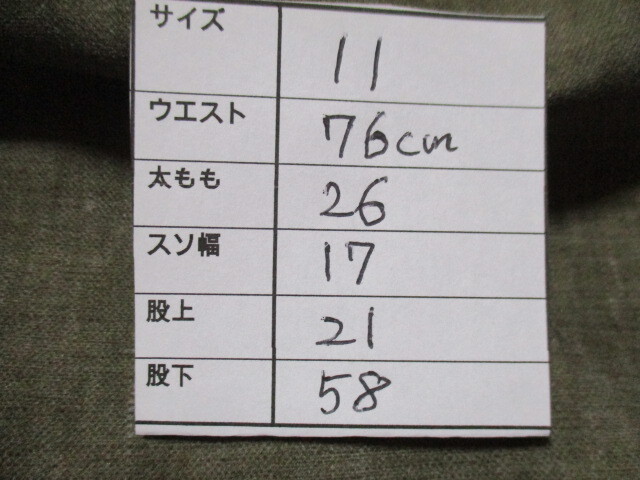 サイズ 11
ウエスト 76cm
太もも 26
スソ幅 17
股上 21
股下 58